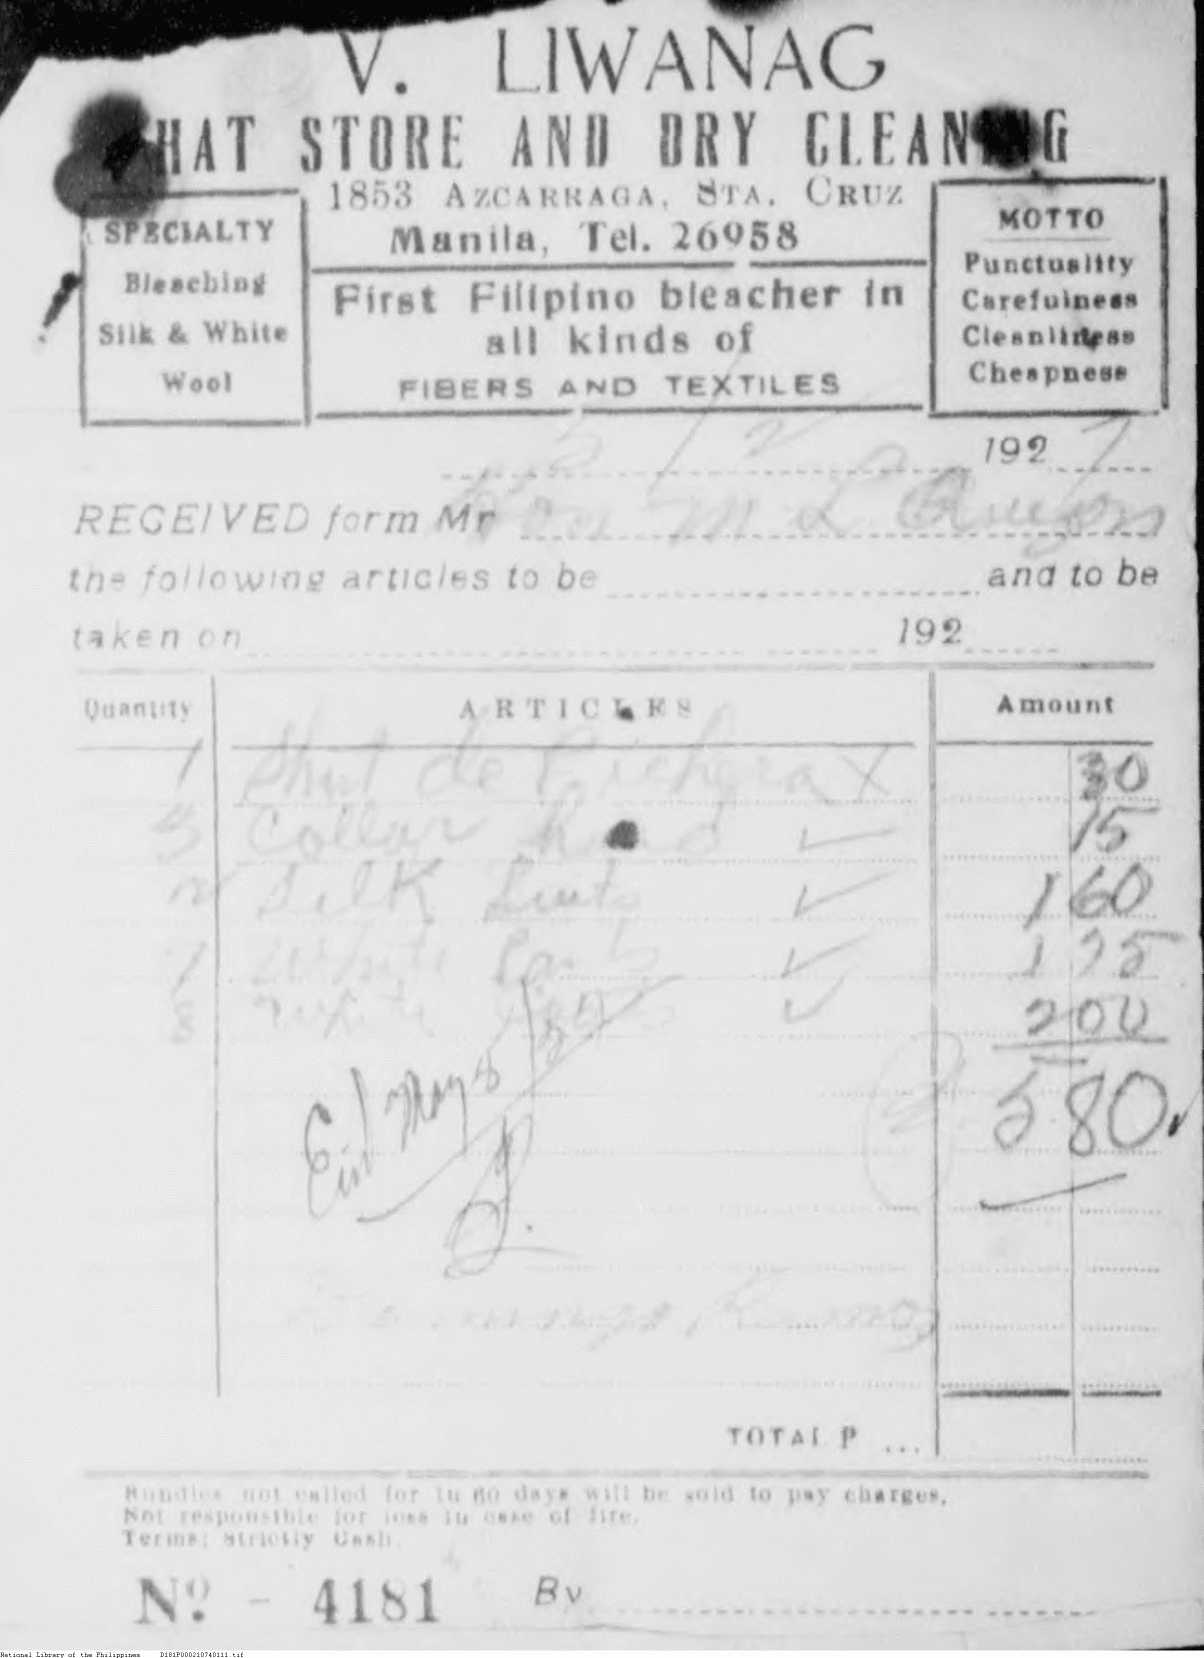 V. LIWANAG
HAT STORE AND DRY CLEANING
1853 AZCARRAGA, STA. CRUZ
Manila, Tel. 26958
SPECIALTY
Bleaching
Silk & White
Wool
First Filipino bleacher in
all kinds of
FIBERS AND TEXTILES
MOTTO
Punctuality
Carefulness
Cleanliness
Cheapness
5/2 1927
RECEIVED form Mr Hon M L Quezon
the following articles to be and to be
taken on 192
Quantity ARTICLES Amount
1 Shirt de Pichera X 30
5 Collar hard ✓ 15
2 Silk Suits ✓ 1 60
7 White Pants ✓ 1 75
8 White ✓ 2 00
5 80
May 8/27
TOTAL P ...
Bundles not called for in 60 days will be sold to pay charges,
Not responsible for loss in case of fire.
Terms: Strictly Cash.
No. - 4181 By
National Library of the Philippines D181P000210740111.tif